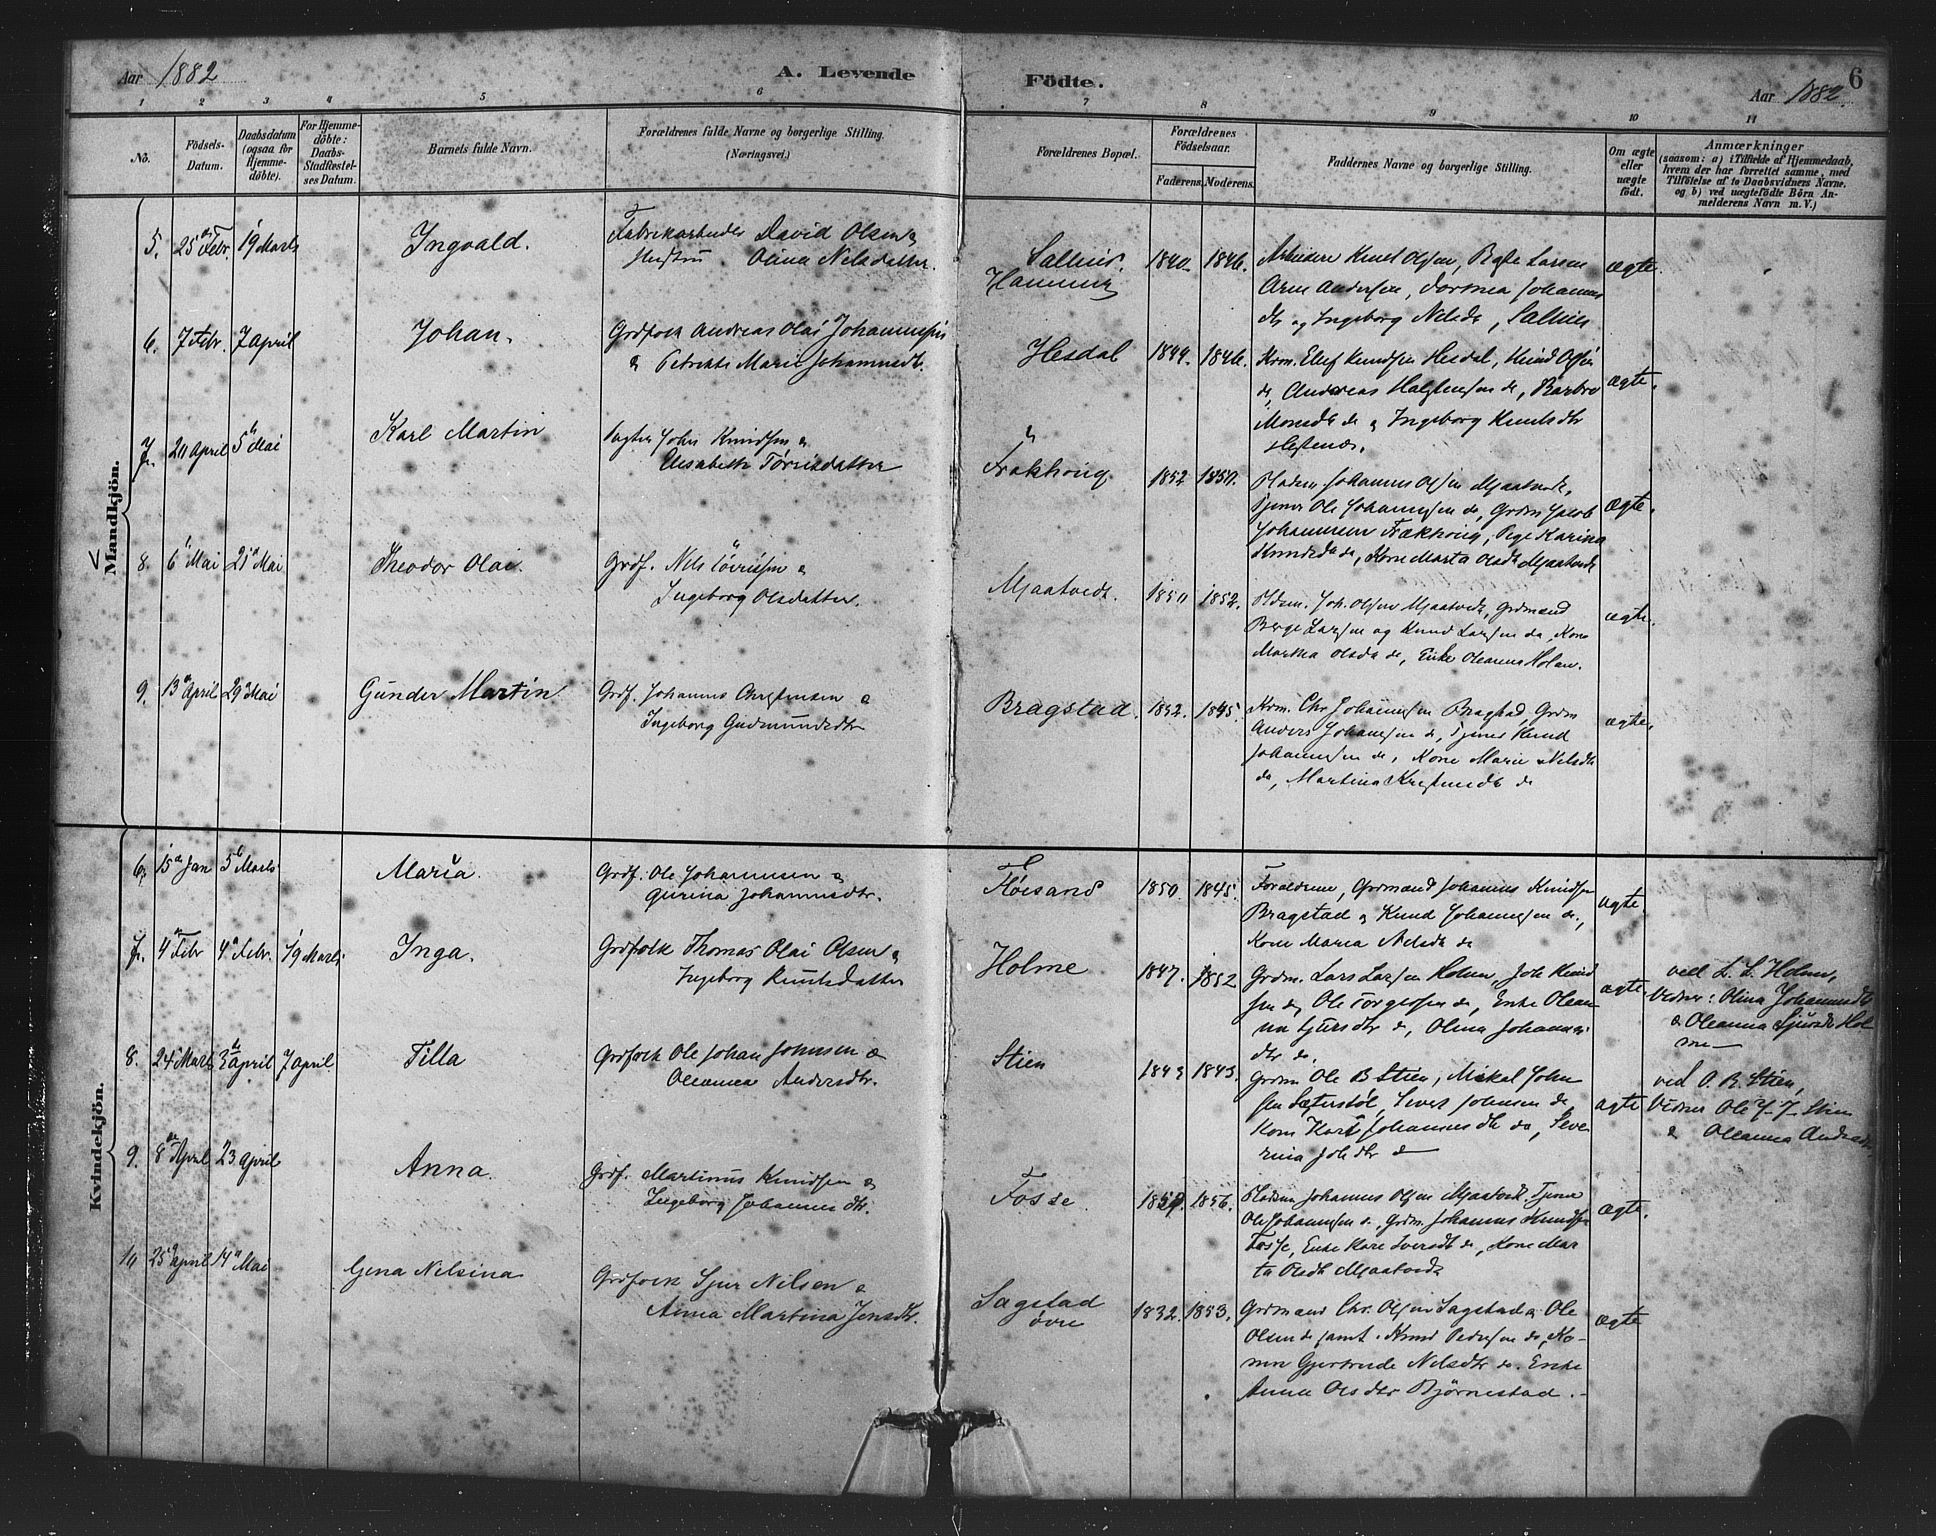 Aar 1882
A. Levende
Födte.
6
Aar 1882.
1 2 3 4 5 6 7 8 9 10 11
No.
Födsels-
Datum.
Daabsdatum
(ogsaa for
Hjemme-
döbte).
For Hjemme-
döbte:
Daabs-
Stadfæstel-
ses Datum.
Barnets fulde Navn.
Forældrenes fulde Navne og borgerlige Stilling.
(Næringsvei.)
Forældrenes Bopæl.
Forældrenes
Födselsaar.
Faderens. Moderens.
Faddernes Navne og borgerlige Stilling.
Om ægte
eller
uægte
födt.
Anmærkninger
(saasom: a) i Tilfælde af Hjemmedaab,
hvem der har forrettet samme, med
Tilföielse af to Daabsvidners Navne,
og b) ved uægtefödte Börn An-
melderens Navn m. V.)
Mandkjön.
5. 25 Febr. 19 Marts
Ingvald.
Fabrikarbeider David Olsen &
Hustru Olina Nilsdatter.
1840. 1846.
Arbeidere Knut Olsen, Larsen
Arne Andersen, Dorthea Johannes
dtr og Ingeborg Nilsdr,
ægte.
6. 7 Febr. 7 April
Johan.
Grdfolk Andreas Olai Johannessen
& Petrikke Marie Johannesdtr.
Hesdal
1844. 1846.
Krm. Elief Knudsen Hesdal, Knud Olsen
ds, Andreas ds, Barbro
Monsdtr ds & Ingeborg Knutsdtr
ægte.
7. 20 April 5 Mai
Karl Martin
John Knudsen &
Elisabeth Tørrisdatter
1852 1850.
Johannes Olsen Mjaatvedt,
Tjener Ole Johannessen ds, Grdm Jacob
Johannessen Pige Karina
ds, Kone Marta Olsdtr Mjaatvedt
ægte.
8. 6 Mai 21 Mai
Theodor Olai.
Grdf. Nils &
Ingeborg Olsdatter.
Mjaatvedt.
1850 1852.
Joh. Olsen Mjaatvedt, Grdmænd
Berge Larsen og Knud Larsen ds, Kone
Martha Olsdtr ds, Enke Oleanna Holme.
ægte.
9. 13 April 29 Mai
Gunder Martin
Grdf. Johannes Christensen &
Ingeborg Gudmundsdtr
Bragstad.
1852. 1845.
Krm. Chr Johannessen Bragstad, Grdm
Anders Johannessen ds, Tjener Knud
Johannessen ds, Kone Marie Nilsdtr
ds, Martina ds
ægte.
Kvindekjön.
6. 15 Jan 5 Marts
Maria.
Grdf. Ole Johannessen &
Gurina Johannesdtr.
Fløisand
1850. 1845.
Forældrene, Grdmænd Johannes Knudsen
Bragstad & Knud Johannessen ds,
Kone Maria Nilsdtr ds
ægte.
7. 4 Febr 4 Febr. 19 Marts
Inga.
Grdfolk Thomas Olai Olsen &
Ingeborg Knutsdatter
Holme
1847. 1852
Grdm. Lars Larsen Holme, Joh Knud
sen ds, Ole Torgersen ds, Enke Olean
na Sjursdtr ds, Olina Johannes
dtr ds.
ægte.
ved L. L. Holme,
Vidner: Olina Johannesdtr
& Oleanna Sjursdtr Hol
me—
8. 24 Marts 3 April 7 April.
Tilla
Grdfolk Ole Johan Johnsen &
Oleanna Andersdtr.
Stien
1843 1843.
Grdm Ole B Stien, Mikal John
sen Sæterstøl, Siver Johnsen ds,
Kone Kari Johannesdtr ds, Seve
rina Johdtr ds
ægte
ved O. B. Stien,
Vidner Ole J. J. Stien
& Oleanna Andersdtr
9. 8 April 23 April
Anna.
Grdf. Martinus Knudsen &
Ingeborg Johannesdtr.
Fosse.
1856.
Johannes Olsen Mjaatvedt, Tjener
Ole Johannessen ds, Grdm. Johannes Knudsen
Fosse, Enke Kari Iversdtr ds, Kone Mar
ta Olsdtr Mjaatvedt
ægte.
10 25 April 14 Mai
Gena Nilsina
Grdfolk Sjur Nilsen &
Anna Martina Jensdtr.
Sagstad
øvre
1832. 1853.
Grdmænd Chr. Olsen Sagstad & Ole
Olsen ds samt Knud Pedersen ds, Ko-
nen Gjertrude Nilsdtr ds. Enke
Anna Olsdtr Bjørnestad.
ægte